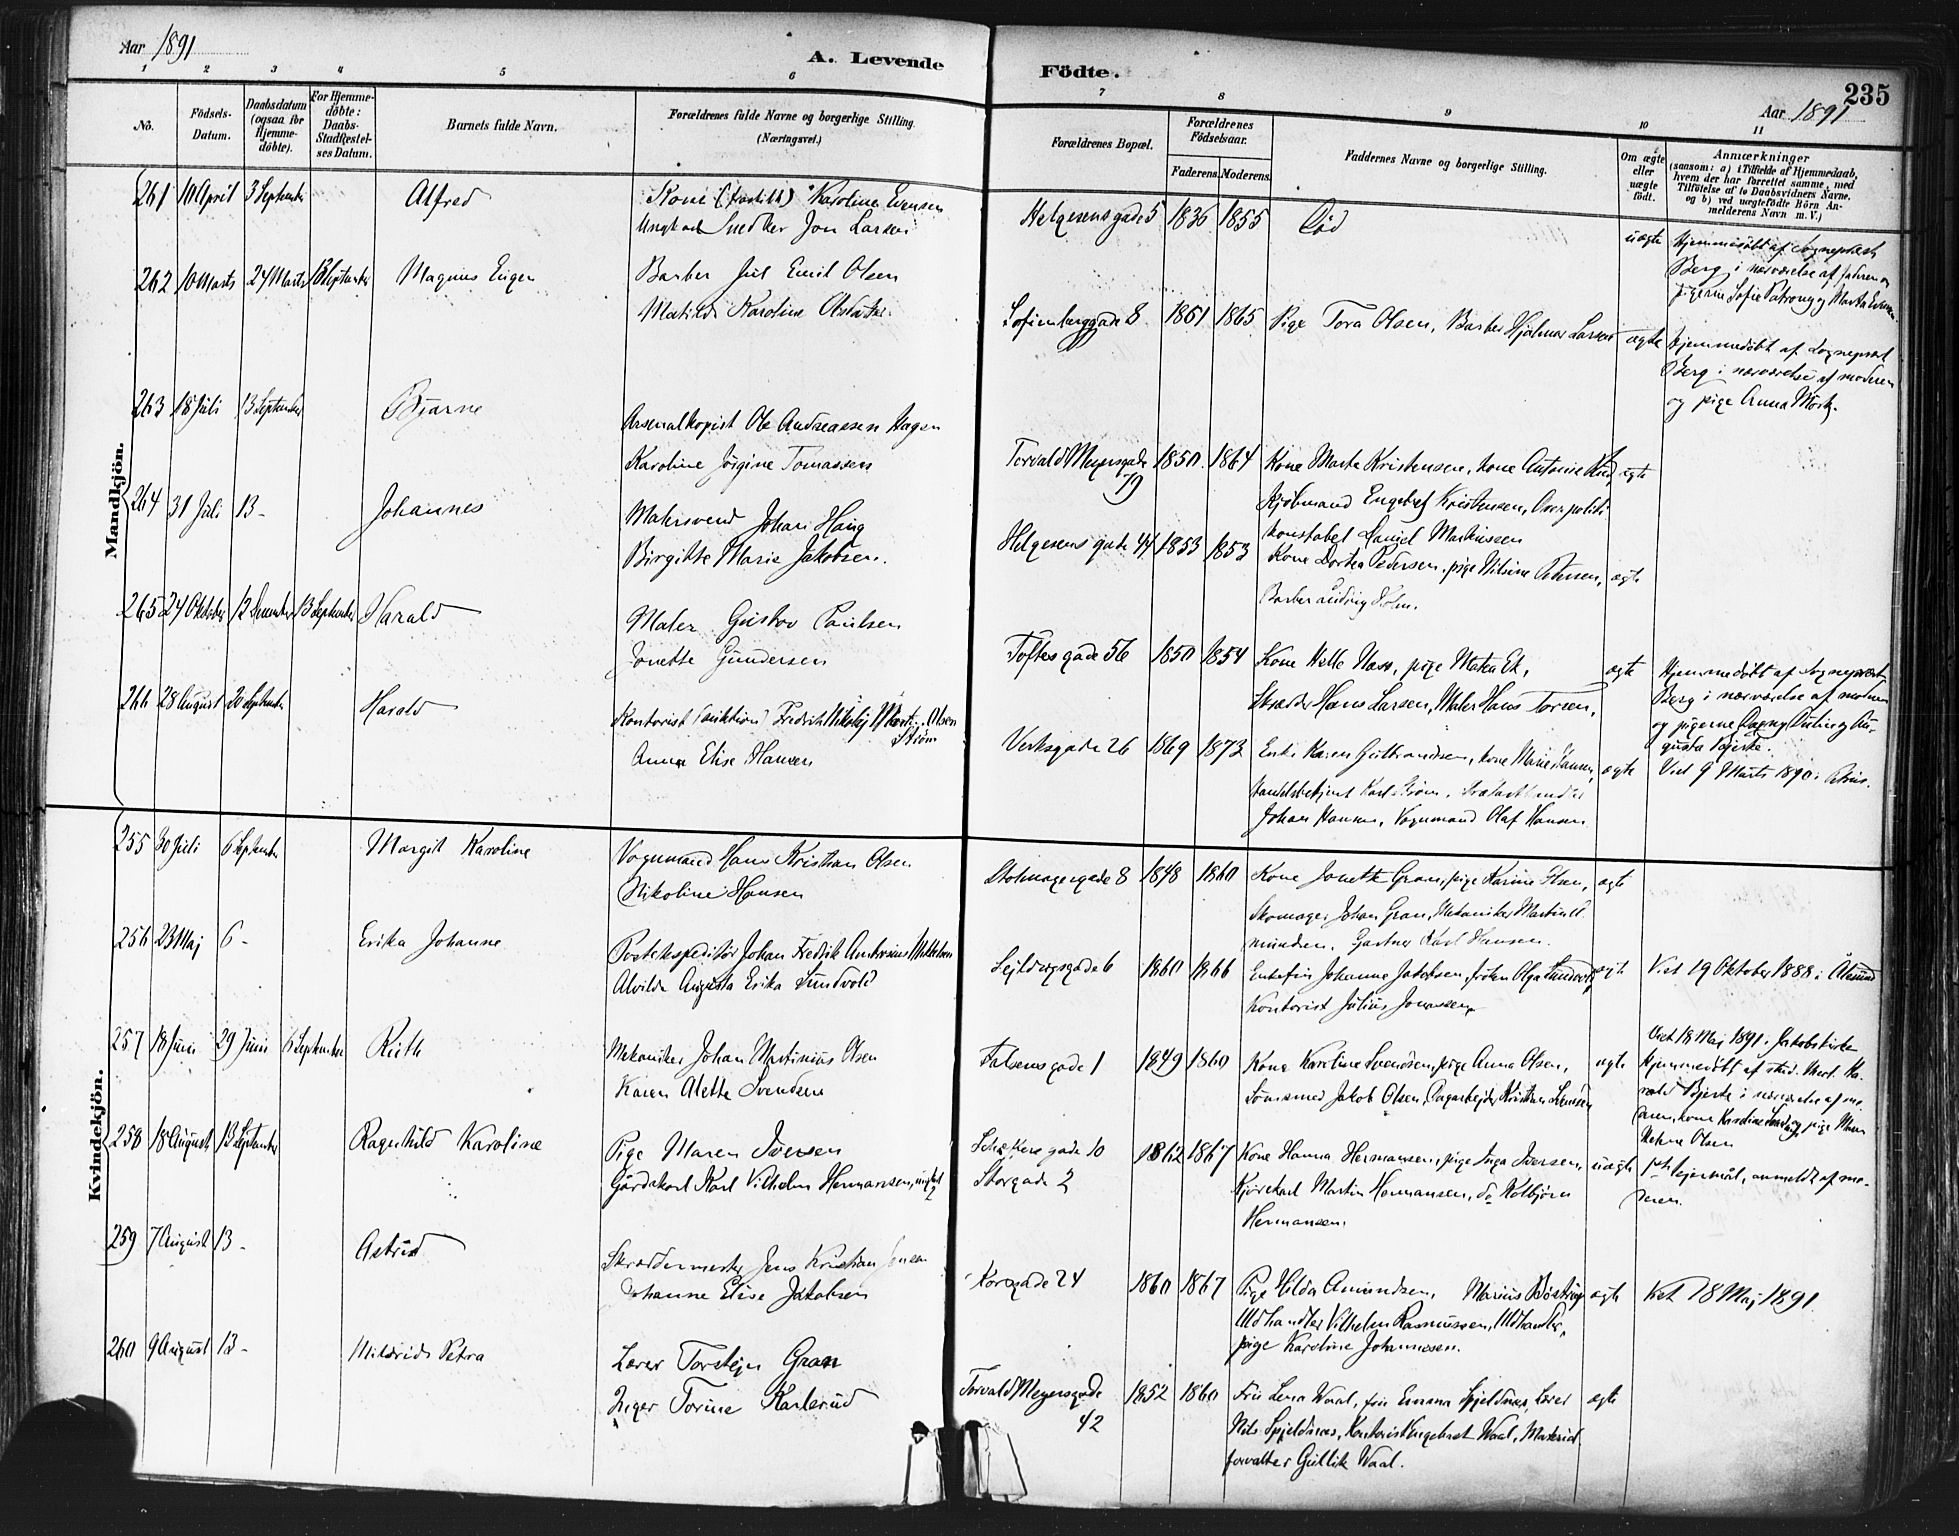 Aar 1891
A. Levende Födte.
235
Aar 1891
1 2 3 4 5 6 7 8 9 10 11
No.
Födsels-Datum.
Daabsdatum (ogsaa for Hjemmedöbte).
For Hjemmedöbte: Daabs-Stadfæstelses Datum.
Barnets fulde Navn.
Forældrenes fulde Navne og borgerlige Stilling.
(Næringsvei.)
Forældrenes Bopæl.
Forældrenes Födselsaar.
Faderens. Moderens.
Faddernes Navne og borgerlige Stilling.
Om ægte eller uægte født.
Anmærkninger
(saasom: a) i Tilfælde af Hjemmedaab, hvem der har forrettet samme, med Tilföielse af to Daabsvidners Navne, og b) ved uægtefödte Börn Anmelderens Navn m. V.)
Mandkjön.
261 10 April 3 September Alfred
Kone Karoline Evensen
Ungkarl Snedker Jon Larsen
Helgesens gade 5 1836 1855 Död uægte
Hjemmedöbt af Sogneprest
Berg i nærværelse af faderen og
pigerne Sofie og Marta Evensen.
262 10 Marts 24 Marts September Magnus Eugen
Barber Jul Emil Olsen
Matilde Karoline
Sofienberggade 8 1861 1865 Pige Tora Olsen, Barber Hjalmar Larsen ægte
Hjemmedöbt af Sogneprest
Berg i nærværelse af moderen
og pige Anna Mork.
263 18 Juli 13 September Bjarne
Arsenalkopist Ole Andreassen Hagen
Karoline Jörgine Tomassen
Torvald Meyersgade 19 1850 1864 Kone Marte Kristensen, kone Antonie ægte
Kjöbmand Engebret Kristensen, Overpoliti
konstabel Daniel Markussen
264 31 Juli 13 - Johannes
Malersvend Johan Haug
Birgitte Marie Jakobsen.
Helgesens gade 44 1853 1853 Kone Dortea Pedersen, pige Nilsine Petersen, ægte
Barber Ludvig Holm.
265 24 Oktober 12 December 13 September Harald
Maler Gustav Paulsen
Jonette Gundersen
Toftes gade 56 1850 1854 Kone Helle Næss, pige Matea Ek, ægte
Skræder Hans Larsen, Maler Hans Torsen,
Hjemmedöbt af Sogneprest
Berg i nærværelse af moderen
og pigerne Dagny og Augusta Bjerke.
266 28 August 20 September Harald
Kontorist Fredrik Nikolaj Olsen
Ström
Anna Elise Hansen
Verksgade 26 1869 1873 Enke Karen Gulbrandsen, kone Marie Hansen, ægte
handelsbetjent Karl Ström,
Johan Hansen, Vognmand Olaf Hansen
Viet 9 Marts 1890 i
Kvindekjön.
255 30 Juli 6 September Margit Karoline
Vognmand Hans Kristian Olsen
Nikoline Hansen
Stolmagergade 8 1848 1860 Kone Jonette Gran, pige Karine Olsen, ægte
Skomager Johan Gran, Mekaniker Martin
Gartner Karl Hansen.
256 23 Maj 6 - Erika Johanne
Postekspeditör Johan Fredrik Andreas Mikkelsen
Alvilde Augusta Erika Sundvold
Sejldugsgade 6 1860 1866 Enkefru Johanne Jakobsen, fröken Olga Sundvold, ægte
Kontorist Julius Jonassen
Viet 19 Oktober 1888 i Ålesund
257 18 Juni 29 Juni 6 September Ruth
Mekaniker Johan Martinius Olsen
Karen Alette Svendsen
Falsens gade 1 1849 1860 Kone Karoline Svendsen, pige Anna Olsen, ægte
Tömmermand Jakob Olsen, Dagarbejder Kristian Svendsen
Viet 18 Maj 1891 i Jakobs kirke
Hjemmedöbt af stud. med. Harald
Bjerke i nærværelse af moderen,
kone Karoline og pige
Helene Olsen
258 18 August 13 September Ragnhild Karoline
Pige Maren Iversen
Gårdskarl Karl Vilhelm Hermansen, ungkarl
gade 10
Storgade 2 1862 1867 Kone Hanna Hermansen, pige Inga Iversen, uægte
Kjörekarl Martin Hermansen, do Kolbjörn
Hermansen.
1ste lejermål, anmeldt af moderen.
259 7 August 13 - Astrid
Skræddermester Jens Kristian Jensen
Johanne Elise Jakobsen
Korsgade 24 1860 1867 Pige Hilda Amundsen, Marius ægte
Uldhandler Vilhelm Rasmussen, Uldhandler,
pige Karoline Johannessen.
Viet 18 Maj 1891.
260 9 August 13 - Mildrid Petra
Lærer Torstejn Gran
Inger Torine Karlsrud
Torvald Meyersgade 42 1852 1860 Fru Lena Waal, fru Emma Spjeldnæs, Lærer ægte
Nils Spjeldnæs, Kontorist Engebret Waal, Material
forvalter Gullik Waal.